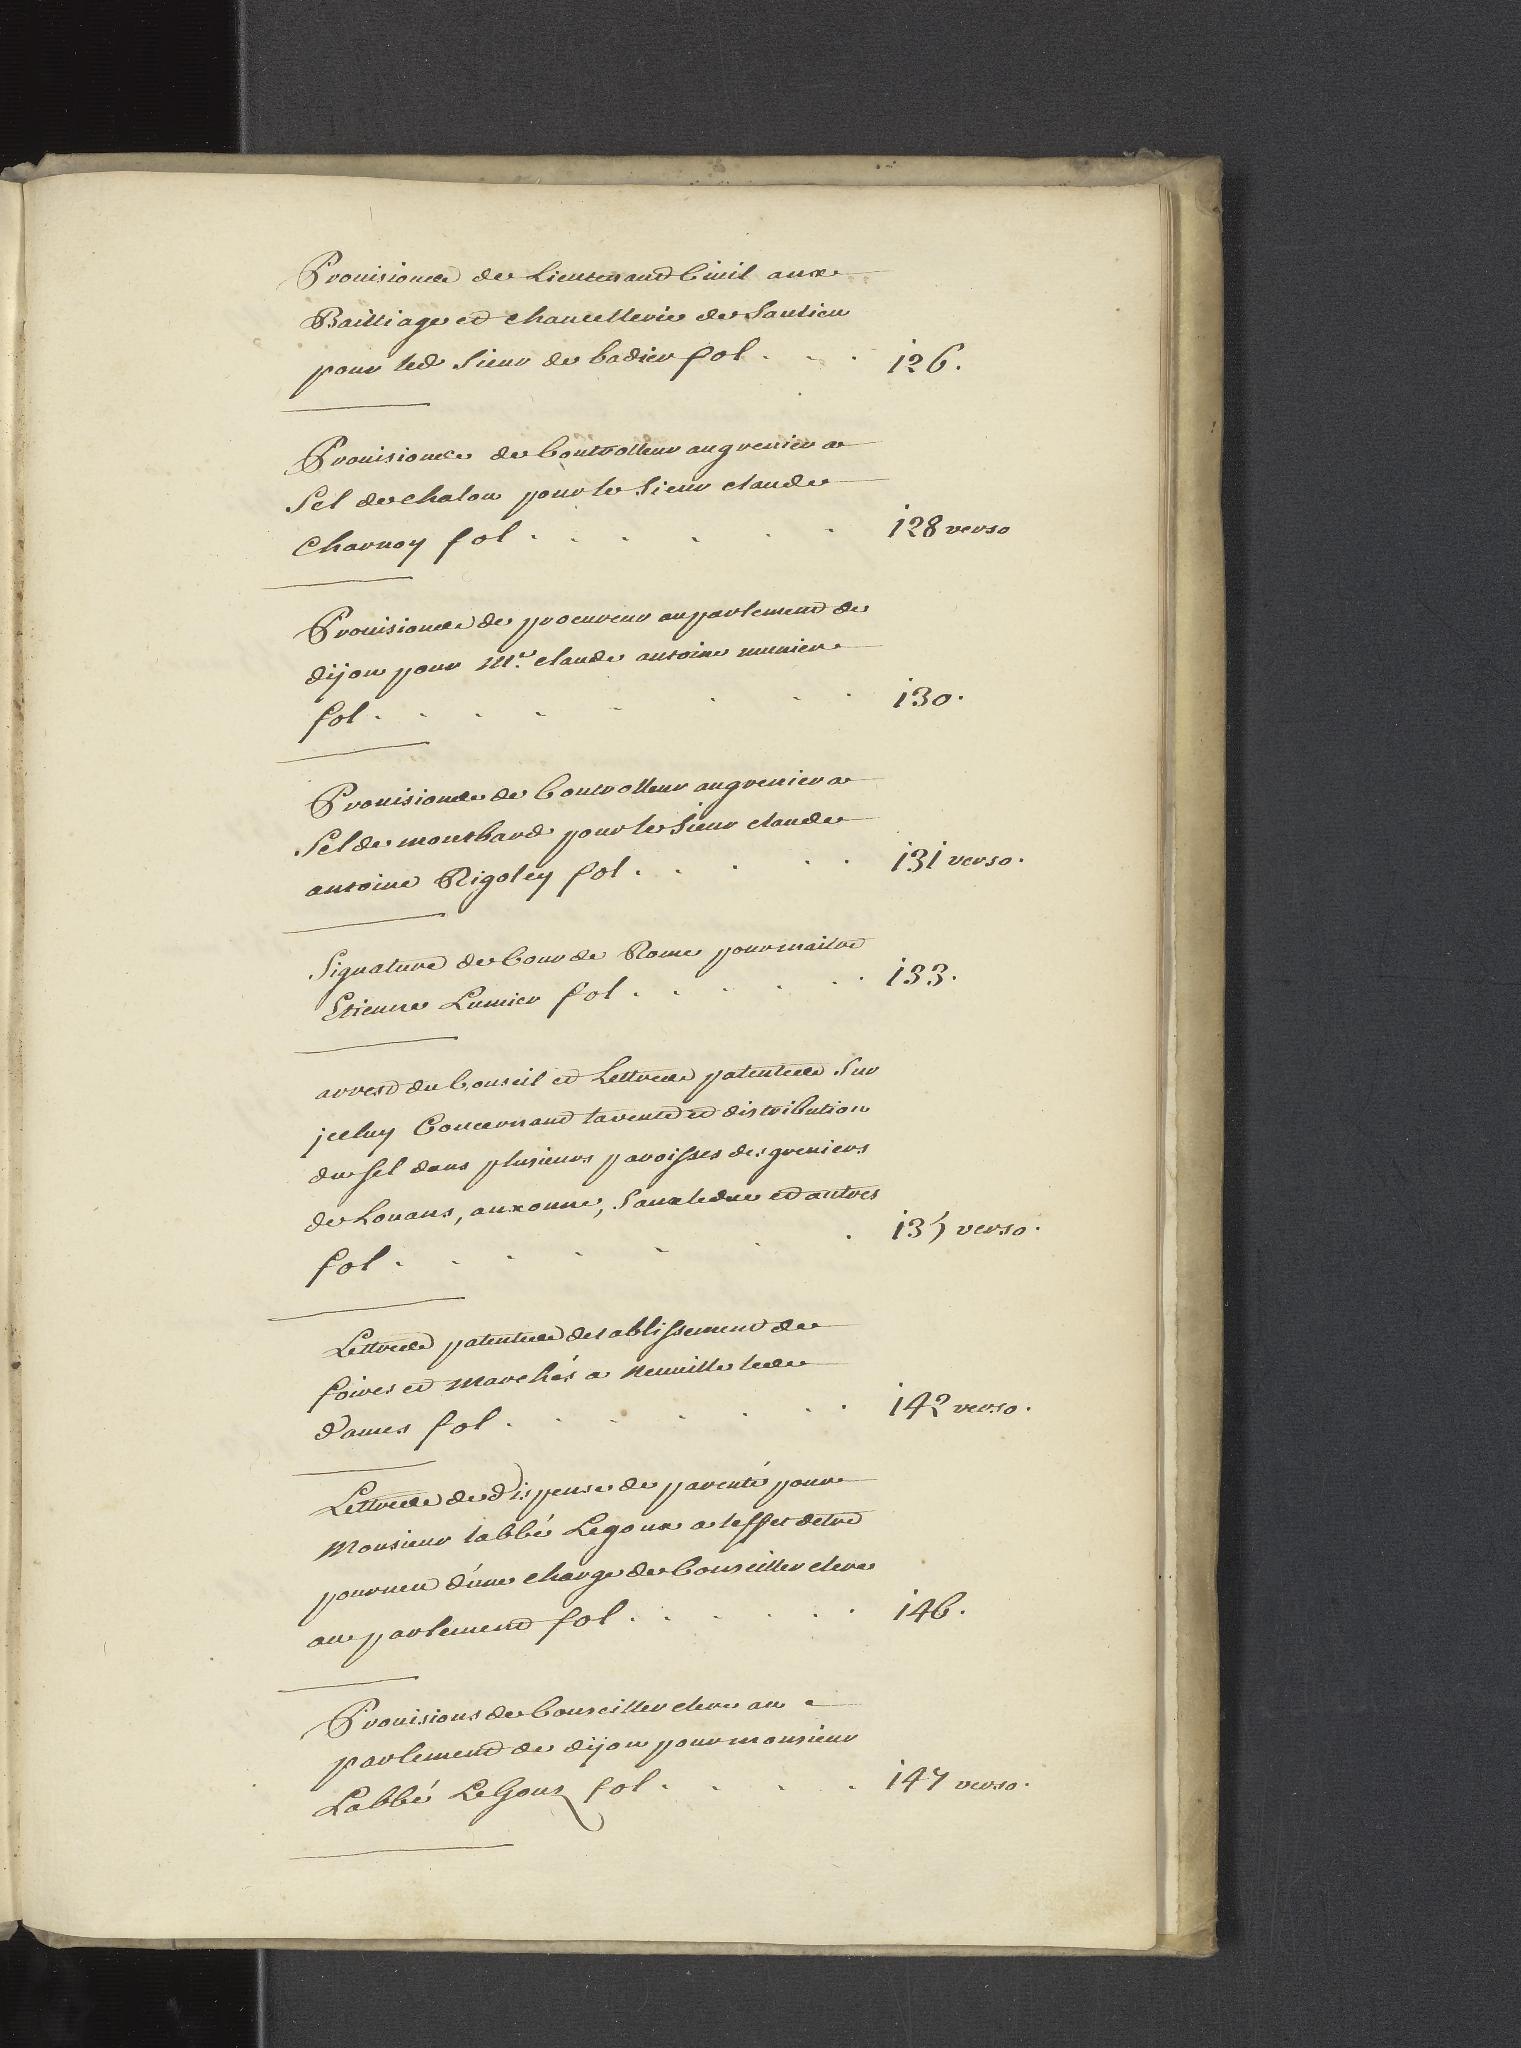 Prouisions de Lieutenant Ciuil aux
Bailliage et chancellerie de Saulieu
pour led Sieur de badier fol . . . 126.
Prouisions de Controlleur augrenier a
Sel de chalon pour le Sieur claude
Charnoy fol . . . . . . 128 verso
Prouisions de procureur auparlement de
dijon pour Mr. claude antoine munier
fol . . . . . . . 130.
Prouisions de Controlleur augrenier a
Sel de montbard pour le Sieur claude
antoine Rigoley fol . . . . . 131 verso.
Signature de Cour de Rome pour maitre
Etienne Lumier fol . . . . . . 133.
arrest du Conseil et Lettres patentes Sur
jceluy Concernant lavente et distribution
du sel dans plusieurs paroisses des greniers
de Louans, auxonne, Saulieu et autres
fol . . . . . . . 135 verso.
Lettres patentes detablissement de
foires et Marchés a Neuuille les
dames fol . . . . . . . 142 verso.
Lettres de dispense de parenté pour
Monsieur labbé Legoux a leffet detre
pourueu d'une charge de Conseiller clerc
au parlement fol . . . . . . 146.
Prouisions de Conseiller clerc au
parlement de dijon pour monsieur
Labbé LeGouz fol . . . . . 147 verso.